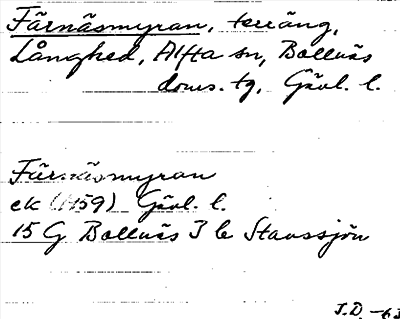 Färnäsmyran, terräng,
Långhed, Alfta sn, Bollnäs
doms. tg, Gävl. l.
Färnäsmyran
ek (1159) Gävl. l.
15 G Bollnäs 3 b Stavssjön
J.D. -63